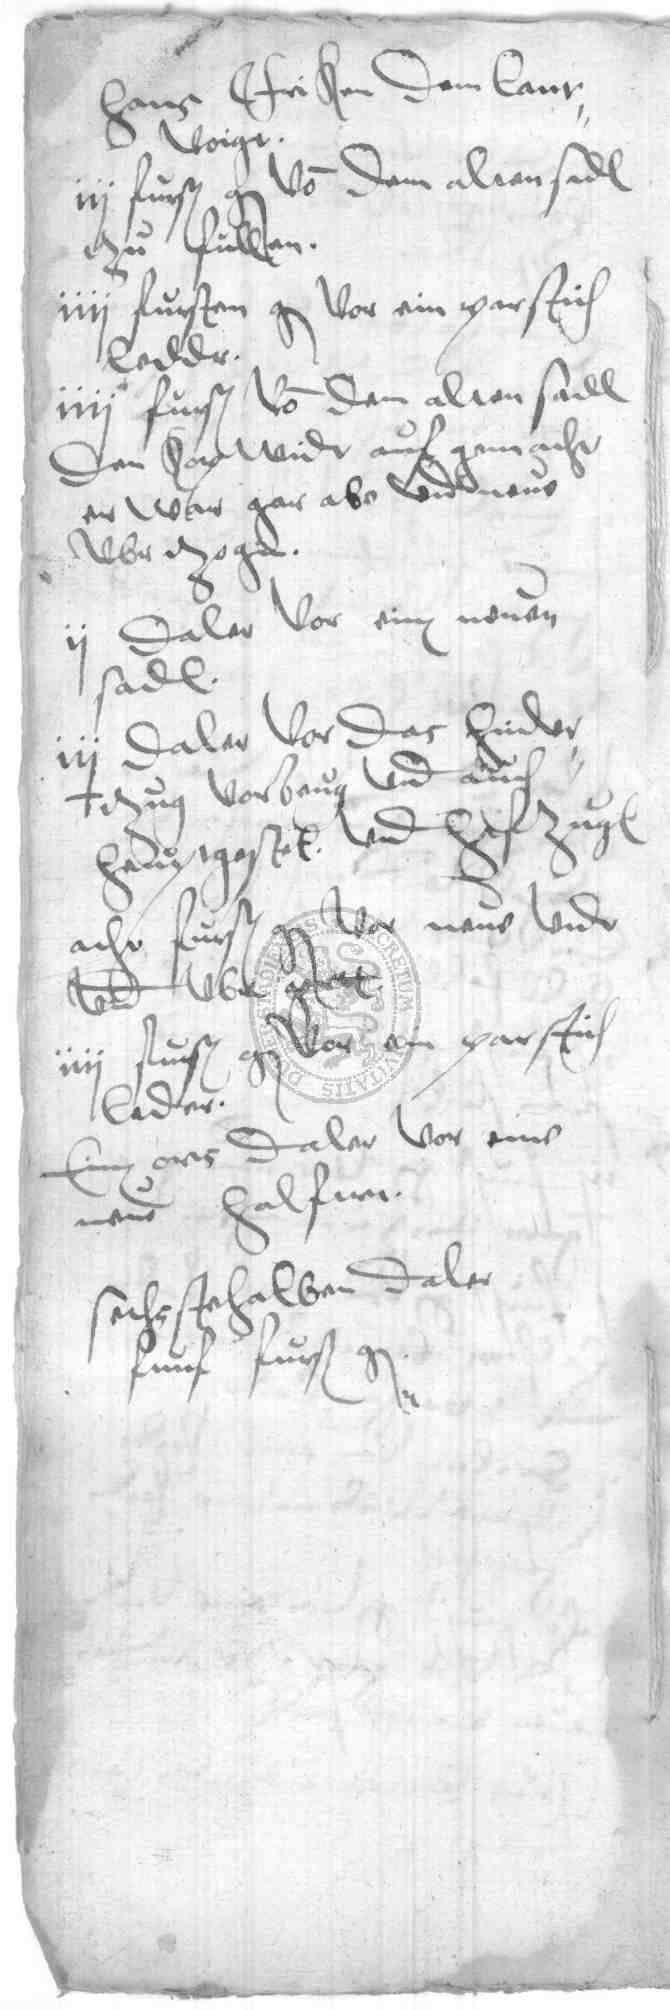 Hans Fricken dem lant
voigt.
iij furst g vo dem alten sadl
tzu fullen.
iiij fursten g vor ein par stich
leddr.
iiij furst vo dem alten sadl
den widr auf gemacht
er war gar abe vnd neue
vbr tzogn.
ij daler vor ein neuen
sadl.
iij daler vor das hinder
tzug vorbeug vnd auch
heuptgestel. vnd zugl
acht furst g vor neue
vnd vbr
iiij furst g vor ein par stich
leder.
Ein orts daler vor eine
neue halfter.
sechstehalben daler
funf furst g